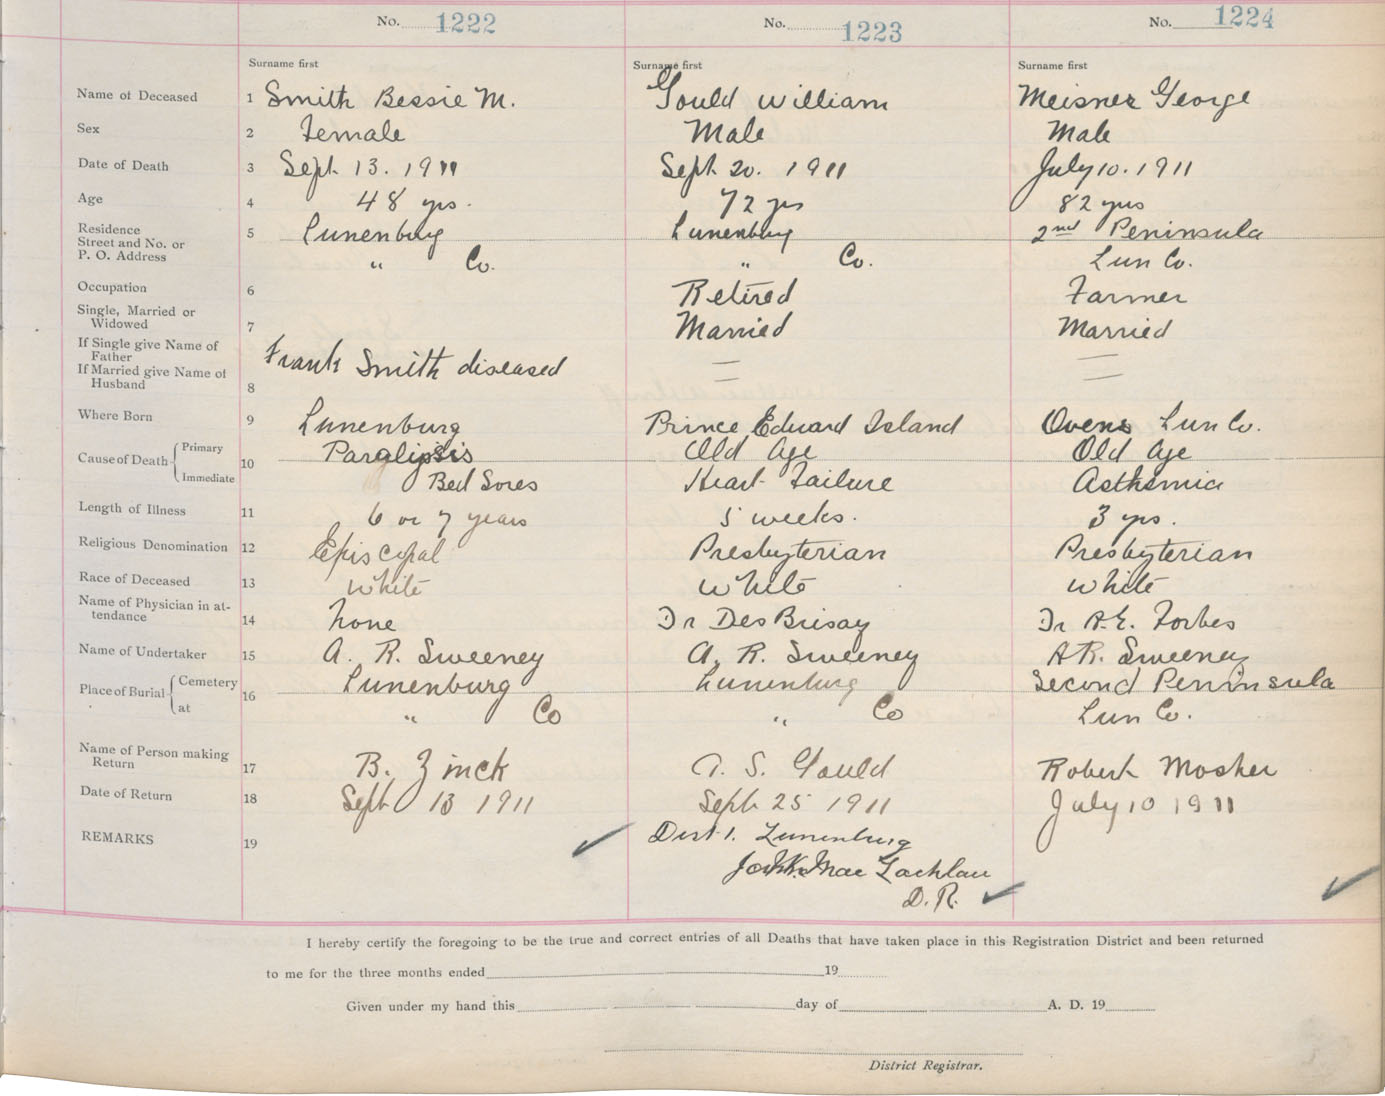 No. 1222 No. 1223 No. 1224
Surname first Surname first Surname first
Name of Deceased 1 Smith Bessie M. Gould William Meisner George
Sex 2 Female Male Male
Date of Death 3 Sept 13. 1911 Sept 20. 1911 July 10. 1911
Age 4 48 yrs. 72 yrs 82 yrs
Residence 5 Lunenburg Lunenburg 2nd Peninsula
Street and No. or
P. O. Address " Co. " Co. Lun Co.
Occupation 6 Retired Farmer
Single, Married or
Widowed 7 Married Married
If Single give Name of
Father Frank Smith diseased — —
If Married give Name of
Husband 8 — —
Where Born 9 Lunenburg Prince Eduard Island Ovens Lun Co.
Cause of Death Primary 10 Paralipsis Old Age Old Age
Immediate Bed Sores Heart Failure Asthemia
Length of Illness 11 6 or 7 years 5 weeks. 3 yrs.
Religious Denomination 12 Episcopal Presbyterian Presbyterian
Race of Deceased 13 White White White
Name of Physician in at-
tendance 14 None Dr DesBrisay Dr A.E. Forbes
Name of Undertaker 15 A. R. Sweeney A. R. Sweeney A R. Sweeney
Place of Burial Cemetery 16 Lunenburg Lunenburg Second Peninsula
at " Co " Co Lun Co.
Name of Person making
Return 17 B. Zinck S. Gould Robert Mosher
Date of Return 18 Sept 13 1911 Sept 25 1911 July 10 1911
REMARKS 19 Dist 1. Lunenburg
Mac Lachlan
D. R.
I hereby certify the foregoing to be the true and correct entries of all Deaths that have taken place in this Registration District and been returned
to me for the three months ended 19
Given under my hand this day of A. D. 19
District Registrar.